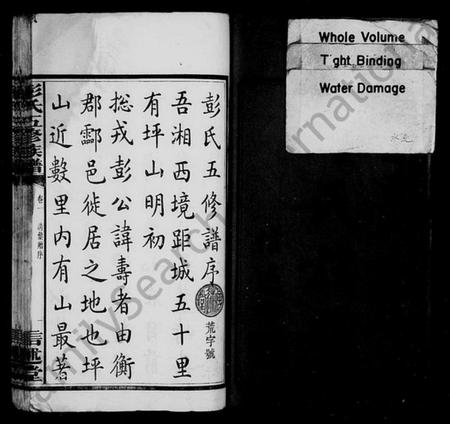 彭氏五修譜序
荒字號
吾湘西境距城五十里
有坪山明初
総戎彭公諱壽者由衡
郡酃邑徙居之地也坪
山近數里内有山最著
彭氏五修族譜
卷一
序
信述堂
Whole Volume
Tight Binding
Water Damage
FamilySearch International